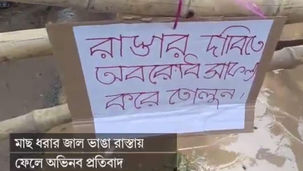 রাস্তার দাবিতে
অবরোধ সফল
করে তোলুন!
মাছ ধরার জাল ভাঙা রাস্তায়
ফেলে অভিনব প্রতিবাদ